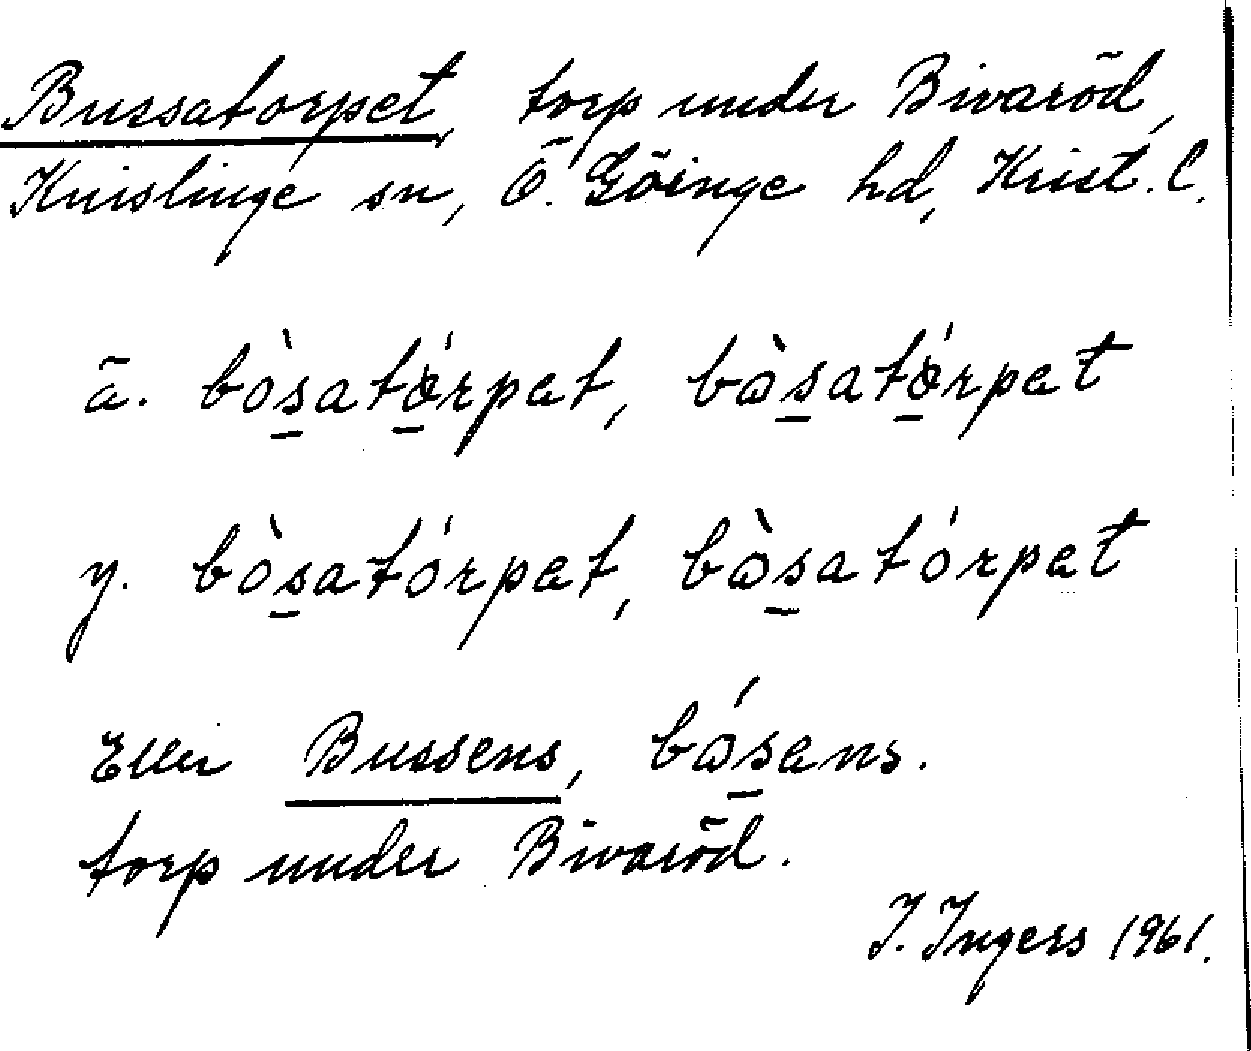 Bussatorpet, torp under Bivaröd,
Knislinge sn, Ö. Göinge hd, Krist. l.
ä. bòsatǿrpet, bòsatǿrpet
y. bòsatórpet, bòsatórpet
Eller Bussens, bósens.
torp under Bivaröd.
I. Ingers 1961.